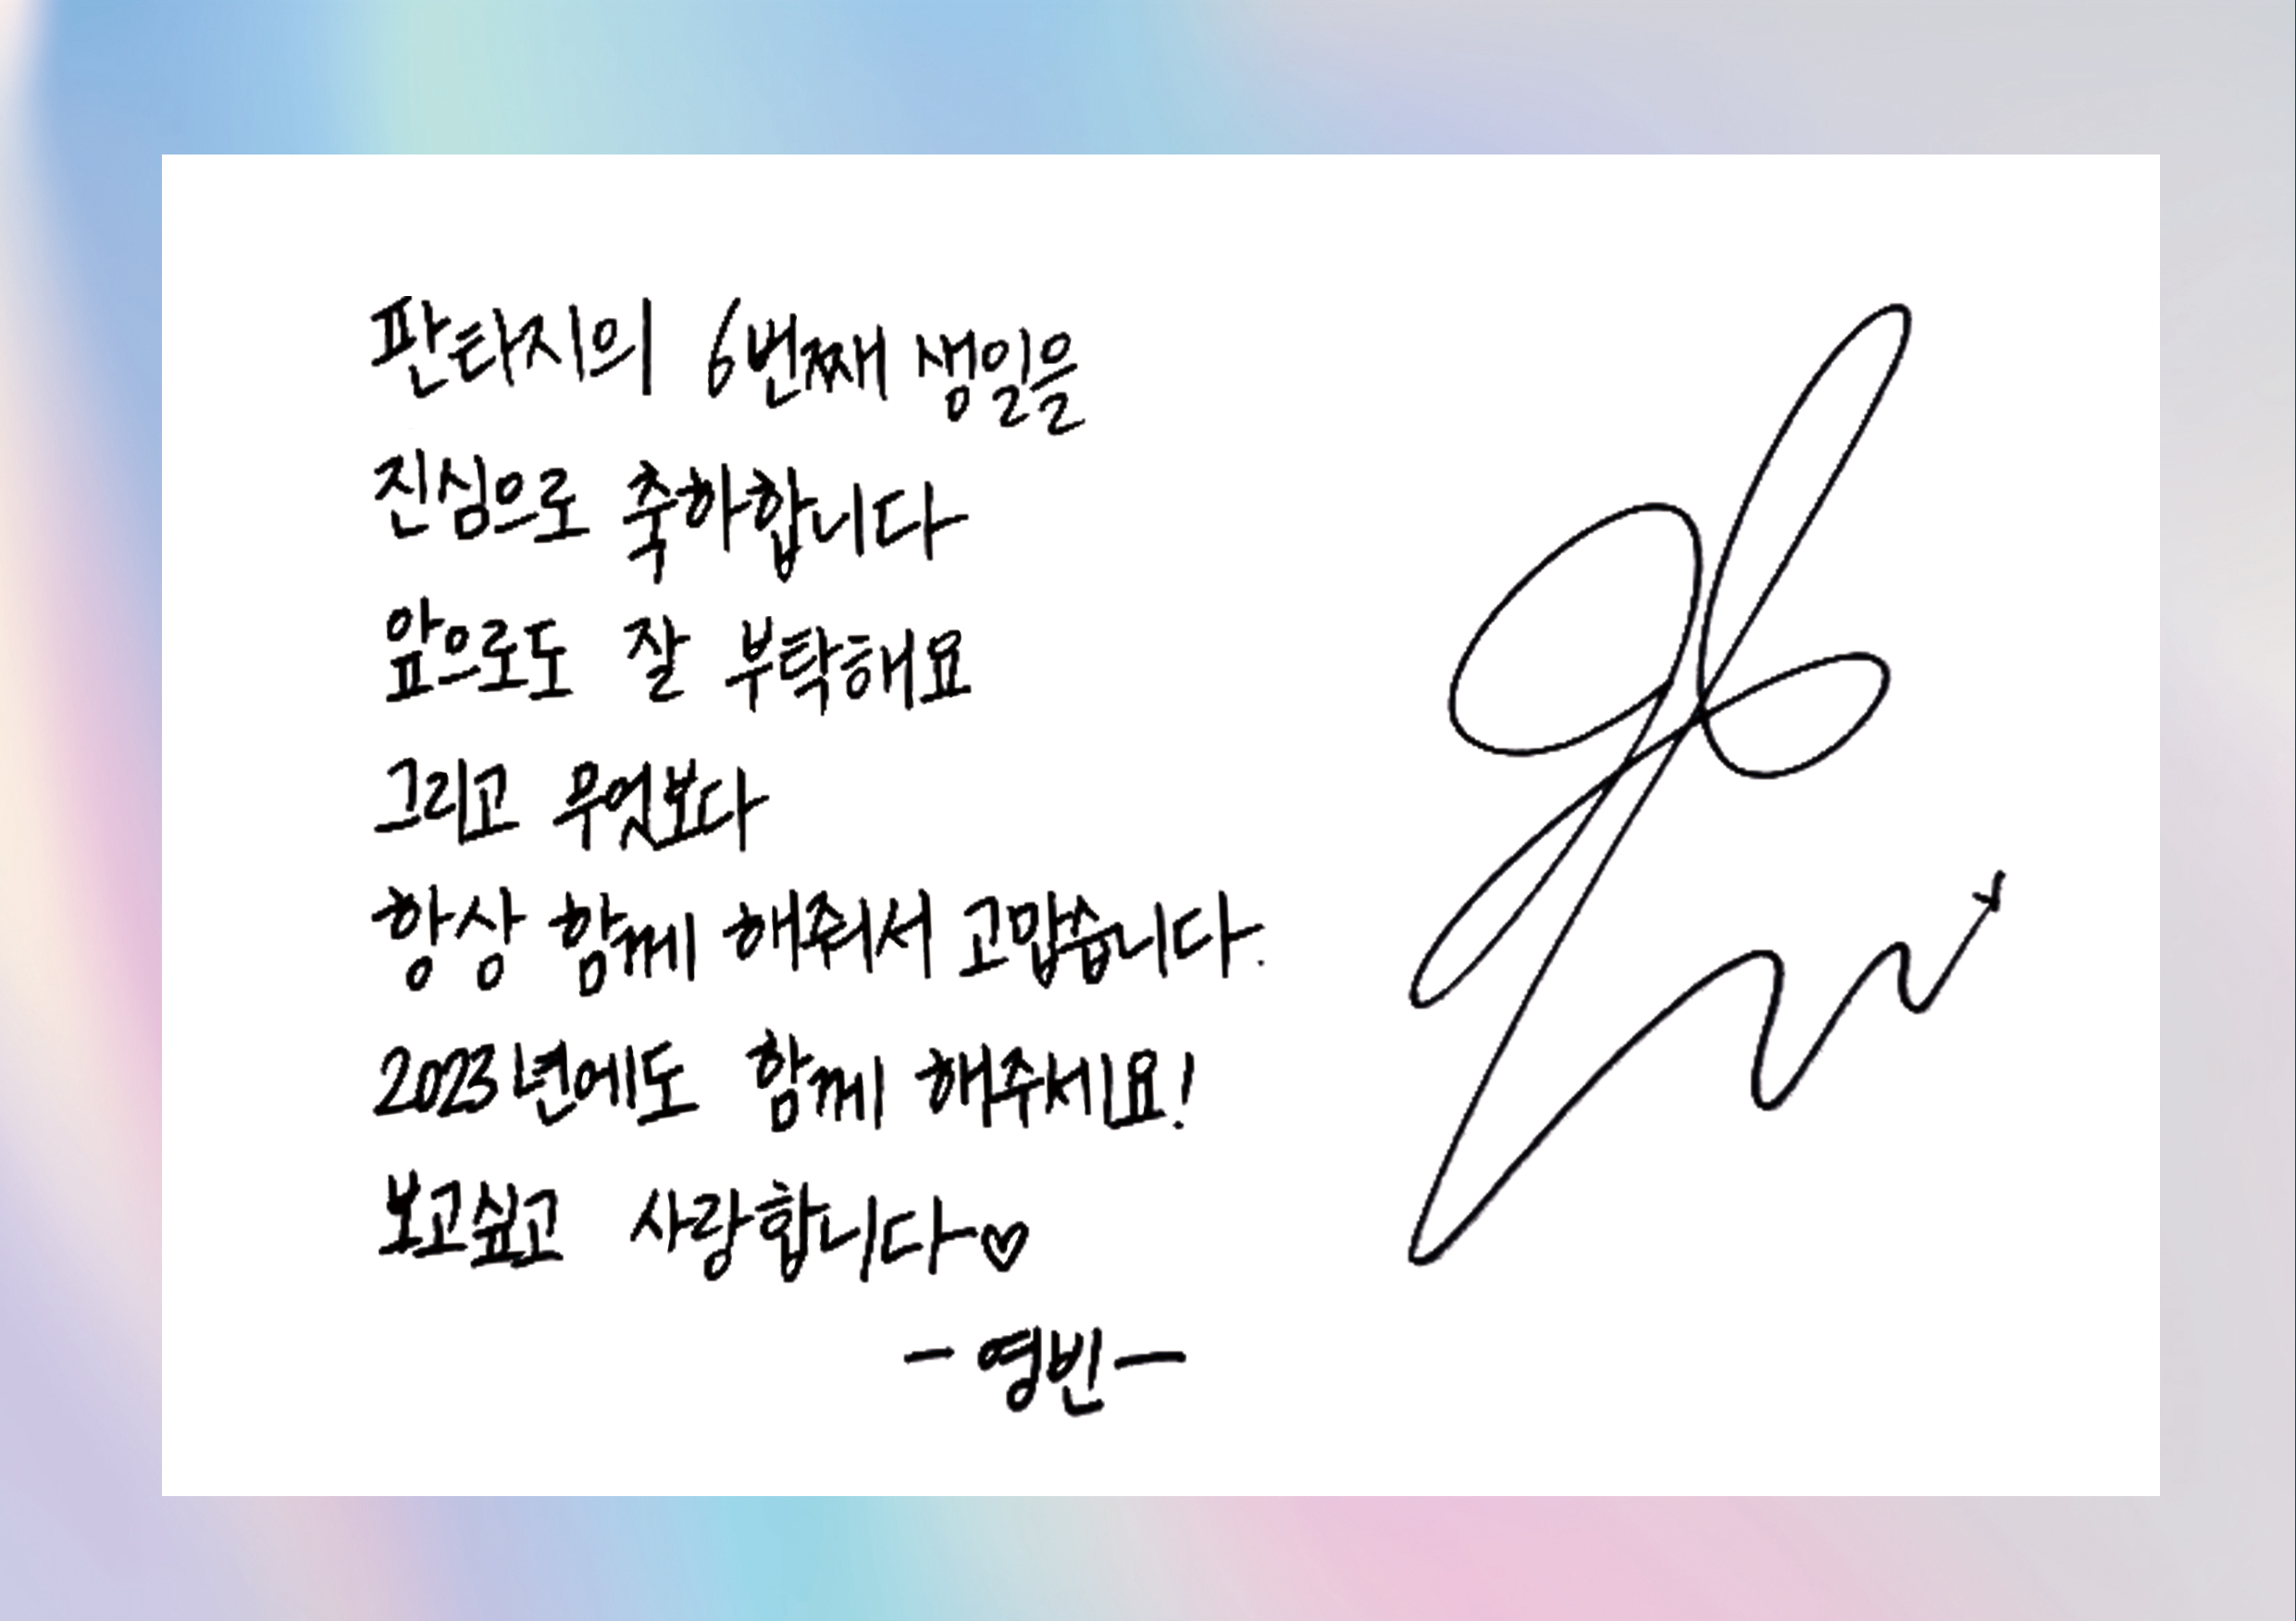 판타지의 6번째 생일을
진심으로 축하합니다
앞으로도 잘 부탁해요
그리고 무엇보다
항상 함께 해줘서 고맙습니다.
2023년에도 함께 해주세요!
보고싶고 사랑합니다♡
- 영빈 -